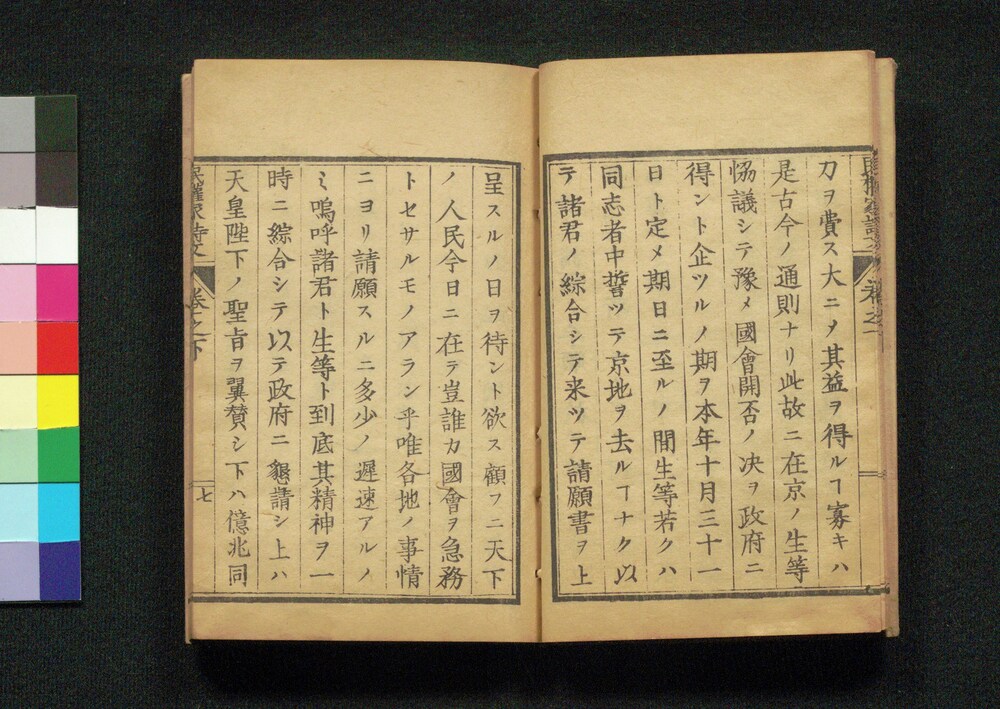 力ヲ費ス大ニメ其益ヲ得ルヿ寡キハ
是古今ノ通則ナリ此故ニ在京ノ生等
恊議シテ豫メ國會開否ノ决ヲ政府ニ
得ント企ツルノ期ヲ本年十月三十一
日ト定メ期日ニ至ルノ間生等若クハ
同志者中誓ツテ京地ヲ去ルヿナク以
テ諸君ノ綜合シテ来ツテ請願書ヲ上
呈スルノ日ヲ待ント欲ス顧フニ天下
ノ人民今日ニ在テ豈誰カ國會ヲ急務
トセサルモノアラン乎唯各地ノ事情
ニヨリ請願スルニ多少ノ遲速アルノ
ミ嗚呼諸君ト生等ト到底其精神ヲ一
時ニ綜合シテ以テ政府ニ懇請シ上ハ
天皇陛下ノ聖旨ヲ翼賛シ下ハ億兆同
民權家詩文 卷之下
七